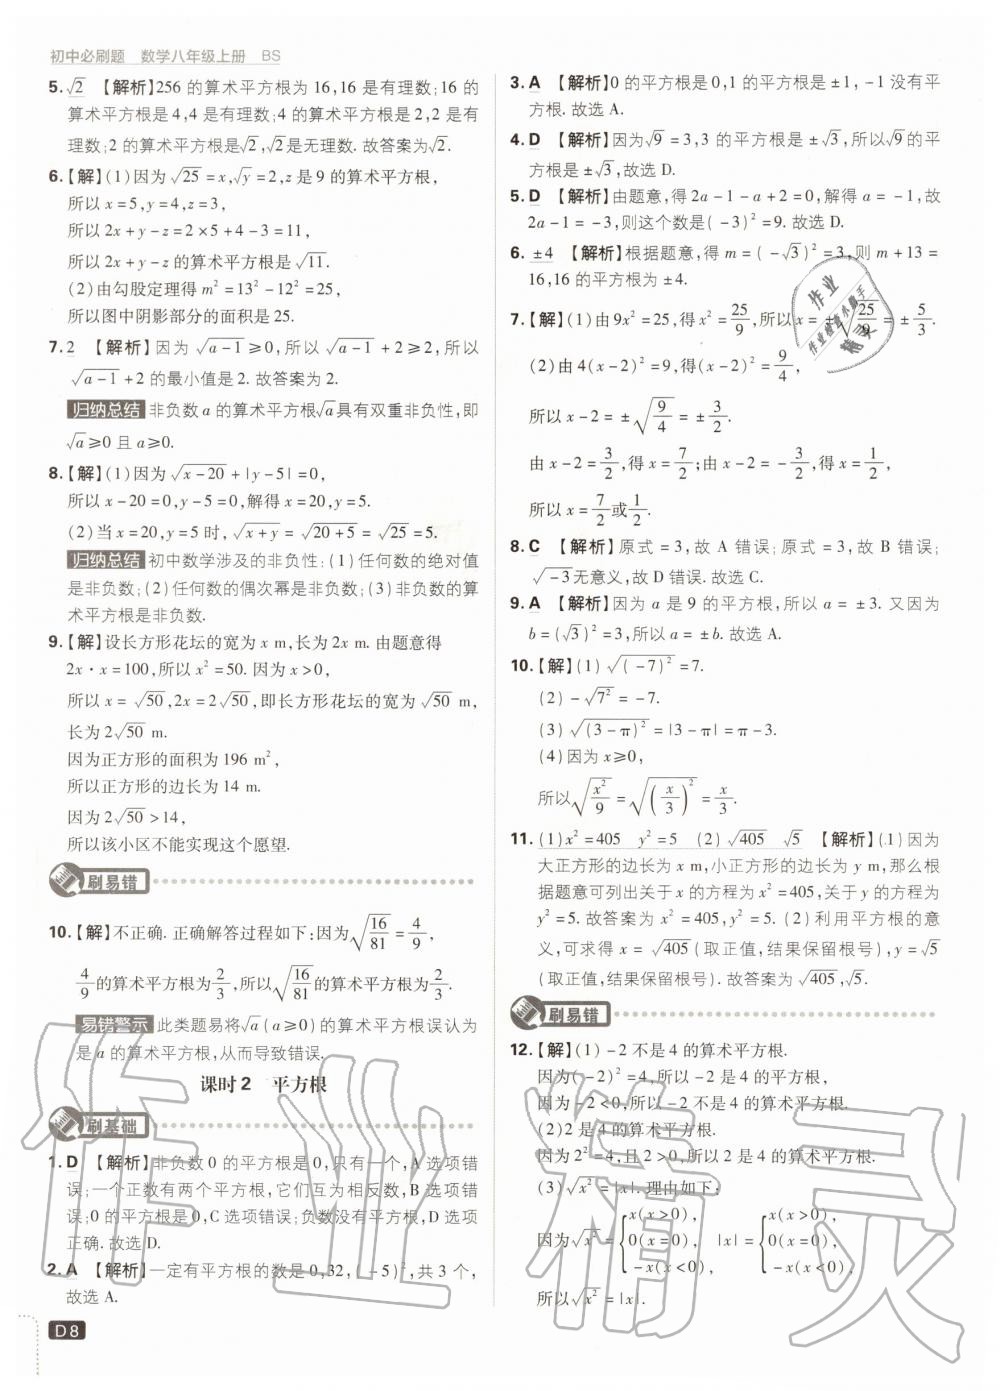 初中必刷题 数学八年级上册 BS
5. √2 【解析】256 的算术平方根为 16,16 是有理数;16 的
算术平方根是 4,4 是有理数;4 的算术平方根是 2,2 是有
理数;2 的算术平方根是√2,√2是无理数. 故答案为√2.
6.【解】(1)因为 √25 = x,√y = 2,z 是 9 的算术平方根,
所以 x = 5,y = 4,z = 3,
所以 2x + y - z = 2×5 + 4 - 3 = 11,
所以 2x + y - z 的算术平方根是 √11.
(2)由勾股定理得 m² = 13² - 12² = 25,
所以图中阴影部分的面积是 25.
7. 2 【解析】因为 √(a-1) ≥0,所以 √(a-1) + 2≥2,所以
√(a-1) + 2 的最小值是 2. 故答案为 2.
归纳总结 非负数 a 的算术平方根√a具有双重非负性,即
√a≥0 且 a≥0.
8.【解】(1)因为 √(x-20) + |y-5| = 0,
所以 x - 20 = 0,y - 5 = 0,解得 x = 20,y = 5.
(2)当 x = 20,y = 5 时, √(x+y) = √(20+5) = √25 = 5.
归纳总结 初中数学涉及的非负性:(1)任何数的绝对值
是非负数;(2)任何数的偶次幂是非负数;(3)非负数的算
术平方根是非负数.
9.【解】设长方形花坛的宽为 x m,长为 2x m. 由题意得
2x·x = 100,所以 x² = 50. 因为 x > 0,
所以 x = √50,2x = 2√50,即长方形花坛的宽为 √50 m,
长为 2√50 m.
因为正方形的面积为 196 m²,
所以正方形的边长为 14 m.
因为 2√50 > 14,
所以该小区不能实现这个愿望.
刷易错
10.【解】不正确. 正确解答过程如下:因为√(16/81) = 4/9,
4/9的算术平方根为2/3,所以√(16/81)的算术平方根为2/3.
易错警示 此类题易将√a(a≥0)的算术平方根误认为
是 a 的算术平方根,从而导致错误.
课时 2 平方根
刷基础
1. D 【解析】非负数 0 的平方根是 0,只有一个,A 选项错
误;一个正数有两个平方根,它们互为相反数,B 选项错
误;0 的平方根是 0,C 选项错误;负数没有平方根,D 选项
正确. 故选 D.
2. A 【解析】一定有平方根的数是 0,32,(-5)²,共 3 个,
故选 A.
D8
3. A 【解析】0 的平方根是 0,1 的平方根是 ±1, -1 没有平
方根. 故选 A.
4. D 【解析】因为√9 = 3,3 的平方根是 ±√3,所以√9的平
方根是 ±√3,故选 D.
5. D 【解析】由题意,得 2a - 1 - a + 2 = 0,解得 a = -1,故
2a - 1 = -3,则这个数是(-3)² = 9. 故选 D.
6. ±4 【解析】根据题意,得 m = (-√3)² = 3,则 m + 13 =
16,16 的平方根为 ±4.
7.【解】(1)由 9x² = 25,得 x² = 25/9,所以 x = ±√(25/9) = ±5/3.
(2)由 4(x-2)² = 9,得(x-2)² = 9/4,
所以 x - 2 = ±√(9/4) = ±3/2.
由 x - 2 = 3/2,得 x = 7/2;由 x - 2 = -3/2,得 x = 1/2,
所以 x = 7/2或1/2.
8. C 【解析】原式 = 3,故 A 错误;原式 = 3,故 B 错误;
√-3无意义,故 D 错误. 故选 C.
9. A 【解析】因为 a 是 9 的平方根,所以 a = ±3. 又因为
b = (√3)² = 3,所以 a = ±b. 故选 A.
10.【解】(1) √(-7)² = 7.
(2) -√7² = -7.
(3) √(3-π)² = |3-π| = π-3.
(4)因为 x≥0,
所以√(x²/9) = √(x/3)² = x/3.
11. (1)x² = 405 y² = 5 (2) √405 √5 【解析】(1)因为
大正方形的边长为 x m,小正方形的边长为 y m,那么根
据题意可列出关于 x 的方程为 x² = 405,关于 y 的方程为
y² = 5. 故答案为 x² = 405,y² = 5. (2)利用平方根的意
义,可求得 x = √405(取正值,结果保留根号),y = √5
(取正值,结果保留根号). 故答案为 √405,√5.
刷易错
12.【解】(1) -2 不是 4 的算术平方根.
因为(-2)² = 4,所以 -2 是 4 的平方根,
因为 -2 < 0,所以 -2 不是 4 的算术平方根.
(2)2 是 4 的算术平方根.
因为 2² = 4,且 2 > 0,所以 2 是 4 的算术平方根.
(3)√x² = |x|. 理由如下:
因为√x² = { x(x>0), 0(x=0), -x(x<0), |x| = { x(x>0), 0(x=0), -x(x<0),
所以√x² = |x|.
作业
作业检查小助手
精灵
作业精灵